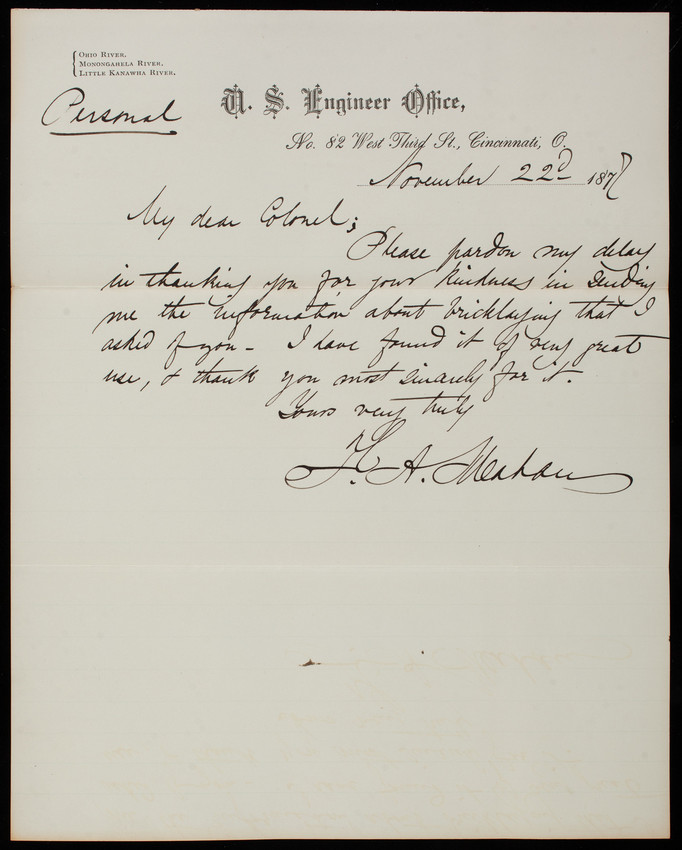 Ohio River.
Monongahela River.
Little Kanawha River.
Personal
U. S. Engineer Office,
No. 82 West Third St., Cincinnati, O.
November 22d 1877
My dear Colonel;
Please pardon my delay
in thanking you for your kindness in sending
me the information about bricklaying that I
asked of you - I have found it of very great
use, & thank you most sincerely for it.
Yours very truly
F. A. Mahan